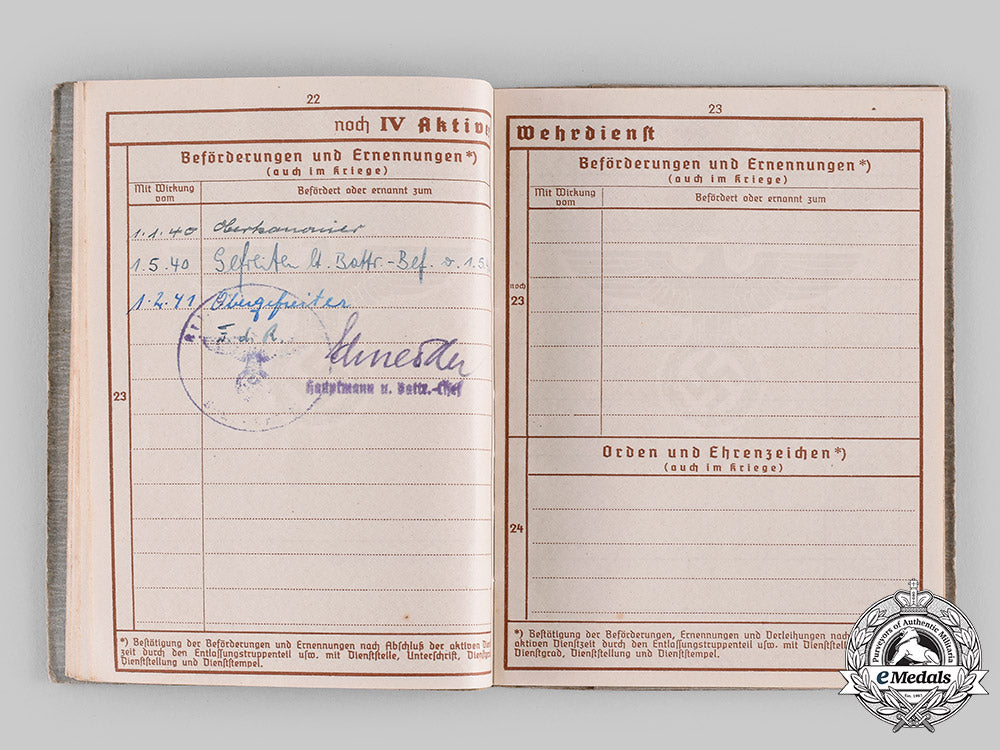 22
noch IV Aktive
Beförderungen und Ernennungen*)
(auch im Kriege)
Mit Wirkung vom
Befördert oder ernannt zum
1.1.40 Oberkanonier
1.5.40 Gefreiten lt. Battr.-Bef. v. 1.5.4
1.2.41 Obergefreiter
F. d. R.
Hauptmann u. Battr.-Chef
23
*) Bestätigung der Beförderungen und Ernennungen nach Abschluß der aktiven Dien
zeit durch den Entlassungstruppenteil usw. mit Dienststelle, Unterschrift, Dienstgra
Dienststellung und Dienststempel.
23
Wehrdienst
Beförderungen und Ernennungen*)
(auch im Kriege)
Mit Wirkung vom
Befördert oder ernannt zum
noch
23
Orden und Ehrenzeichen*)
(auch im Kriege)
24
*) Bestätigung der Beförderungen, Ernennungen und Verleihungen nach
aktiven Dienstzeit durch den Entlassungstruppenteil usw. mit Dienststelle
Dienstgrad, Dienststellung und Dienststempel.
Purveyors of Authentic Militaria
eMedals